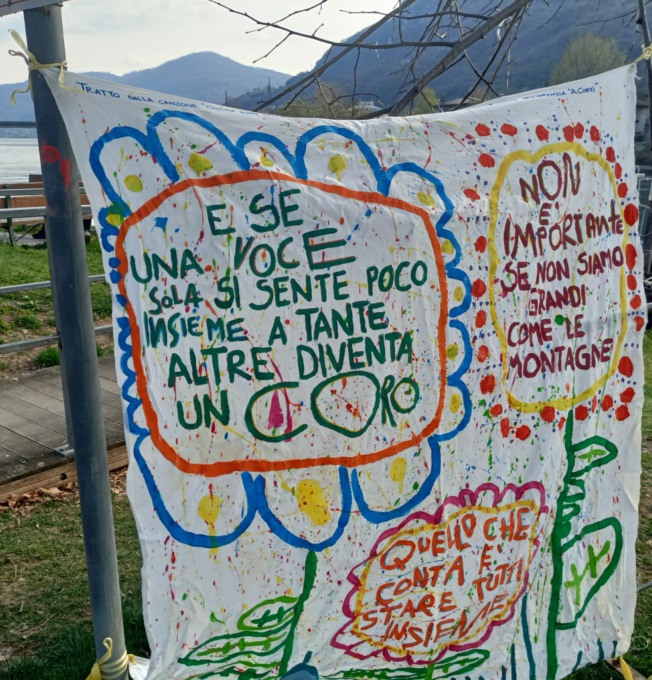 TRATTO DALLA CANZONE
"A. CORTI"
E SE
UNA VOCE
SOLA SI SENTE POCO
INSIEME A TANTE
ALTRE DIVENTA
UN CORO
NON
È
IMPORTANTE
SE NON SIAMO
GRANDI
COME LE
MONTAGNE
QUELLO CHE
CONTA È
STARE TUTTI
INSIEME